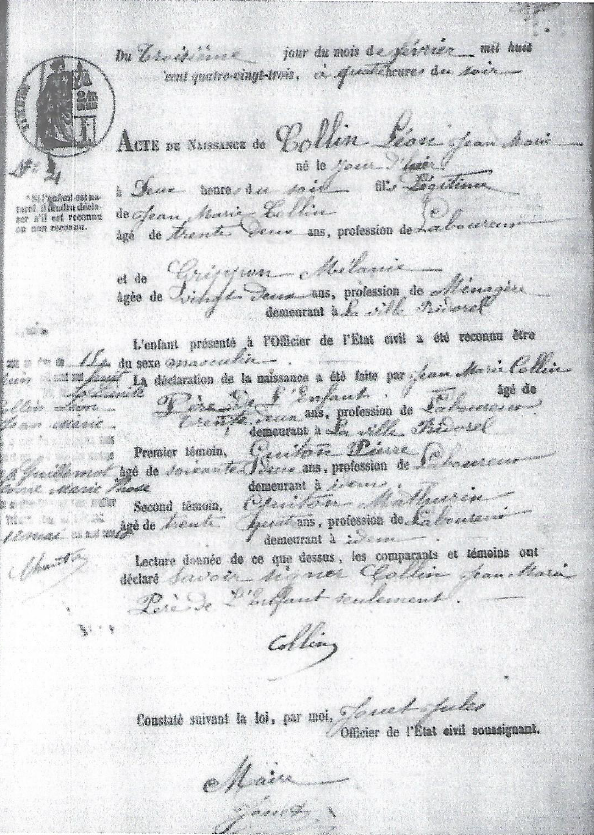 Du Troisième jour du mois de février mil huit
cent quatre-vingt-trois, à quatre heures du soir
ACTE DE NAISSANCE de Collin Léon Jean Marie
né le jour d'hier
N° 4
à Deux heures du soir fils Légitime
de Jean Marie Collin
âgé de trente deux ans, profession de Laboureur
et de Grippon Mélanie
âgée de vingt deux ans, profession de Ménagère
demeurant à La ville Tridorel
L'enfant présenté à l'Officier de l'État civil a été reconnu être
du sexe masculin.
La déclaration de la naissance a été faite par Jean Marie Collin
Père de L'Enfant. âgé de
trente deux ans, profession de Laboureur
demeurant à La ville Tridorel
Premier témoin, Guiton Pierre
âgé de soixante deux ans, profession de Laboureur
demeurant à idem
Second témoin, Guiton Mathurin
âgé de trente ans, profession de Laboureur
demeurant à idem
Lecture donnée de ce que dessus, les comparants et témoins ont
déclaré savoir signer Collin Jean Marie
Père de L'Enfant seulement.
Collin
Constaté suivant la loi, par moi, Jouet Jules
Officier de l'État civil soussigné.
Maire
Jouet
*Si l'enfant est na-
turel, il faudra décla-
rer s'il est reconnu
ou non reconnu.
Collin Léon
Jean Marie
Guillemot
Marie